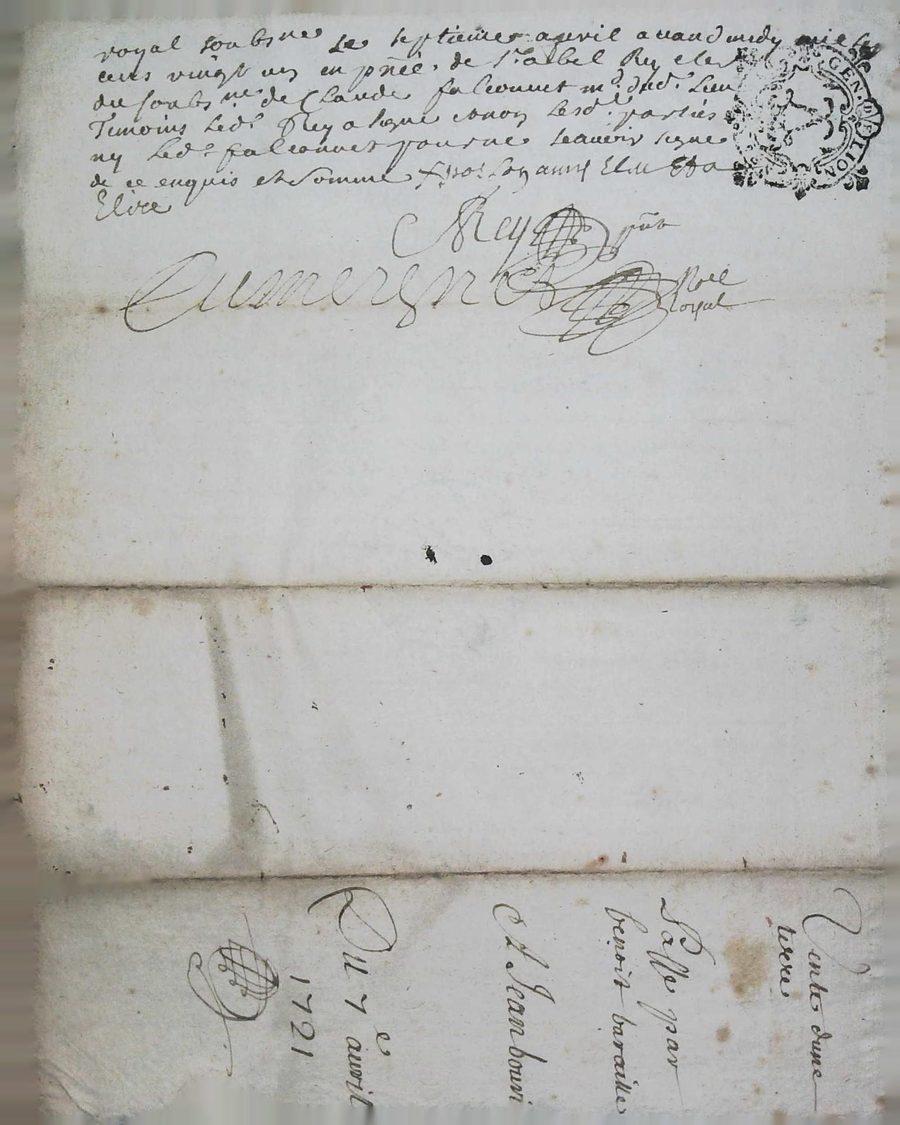 royal soubsne le septieme auril auand midy mil sept
cens vingt un en pñce de Sr abel Rey clerc
du soubs.ne de Claude falconnet md dud. Lieu
Temoins led. Rey a signe et non lesd. parties
ny led. falconnet pour ne scauoir signe
de ce enquis et somme
Elire
Rey pñt
Nore
Royal
GEN DE LION
Vente dune
terre
passe par
benoit baraille
A Jean bouui
Du 7e auril
1721